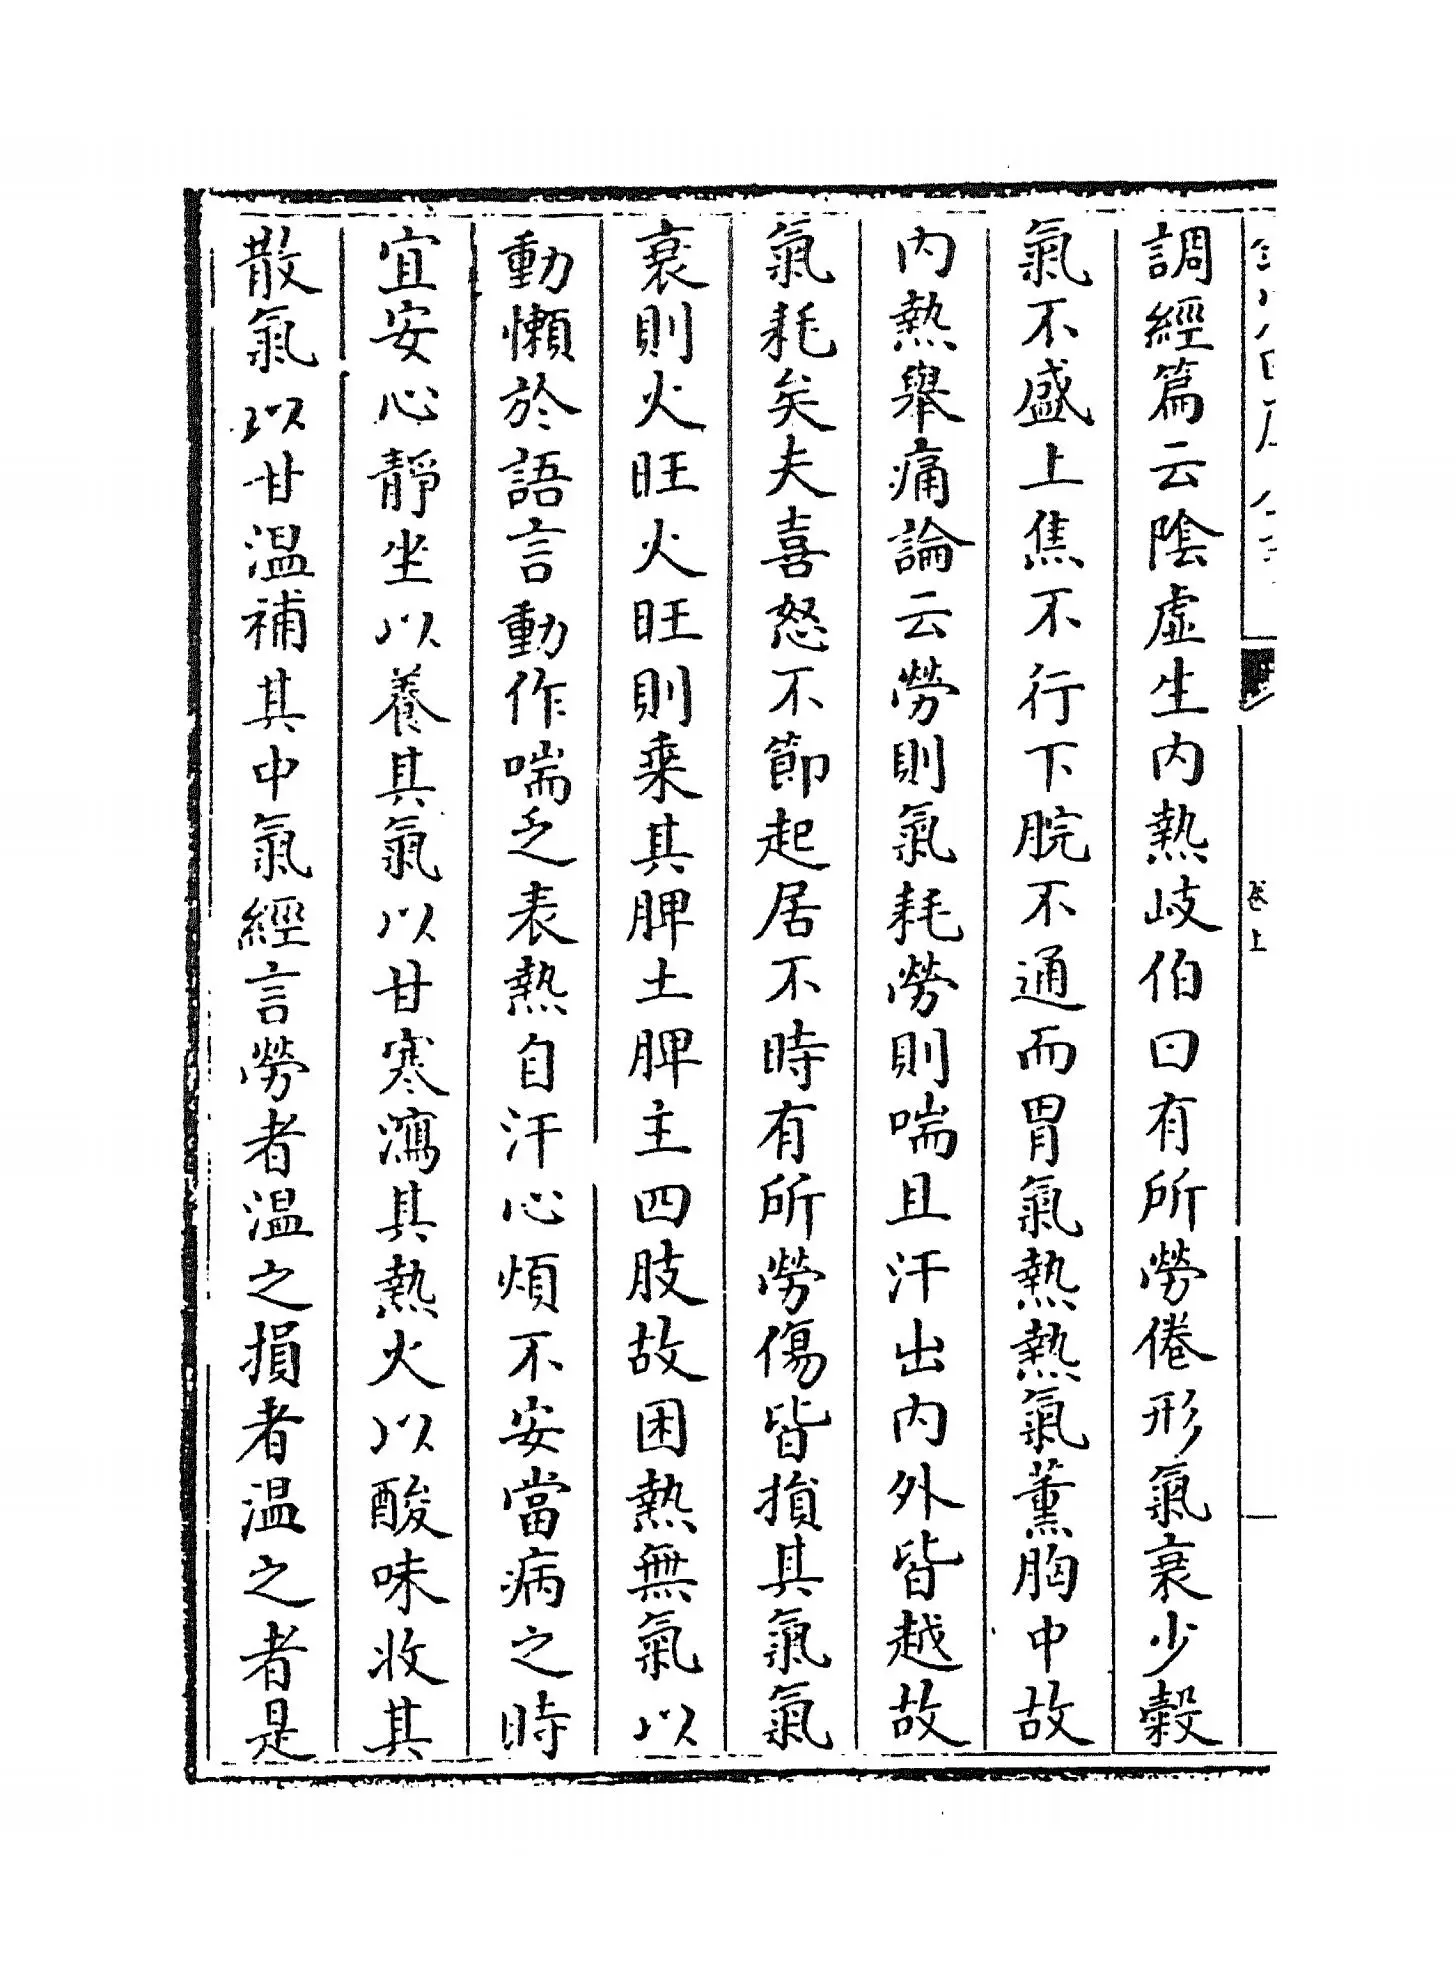 調經篇云陰虛生内熱岐伯曰有所勞倦形氣衰少穀
氣不盛上焦不行下脘不通而胃氣熱熱氣薰胸中故
内熱舉痛論云勞則氣耗勞則喘且汗出内外皆越故
氣耗矣夫喜怒不節起居不時有所勞傷皆損其氣氣
衰則火旺火旺則乘其脾土脾主四肢故困熱無氣以
動懶於語言動作喘乏表熱自汗心煩不安當病之時
宜安心靜坐以養其氣以甘寒瀉其熱火以酸味收其
散氣以甘温補其中氣經言勞者温之損者温之者是
卷上